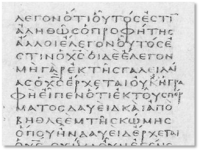 ΛΕΓΟΝΟΤΙΟΥΤΟϹΕϹΤΙ
ΑΛΗΘΩϹΟΠΡΟΦΗΤΗϹ
ΑΛΛΟΙΕΛΕΓΟΝΟΥΤΟϹΕ
ϹΤΙΝΟΧϹΟΙΔΕΕΛΕΓΟΝ
ΜΗΓΑΡΕΚΤΗϹΓΑΛΕΙΛΑΙ
ΑϹΟΧϹΕΡΧΕΤΑΙΟΥΧΗΓΡΑ
ΦΗΕΙΠΕΝΟΤΙΕΚΤΟΥϹΠΕΡ
ΜΑΤΟϹΔΑΥΕΙΔΚΑΙΑΠΟ
ΒΗΘΛΕΕΜΤΗϹΚΩΜΗϹ
ΟΠΟΥΗΝΔΑΥΕΙΔΕΡΧΕΤΑΙ